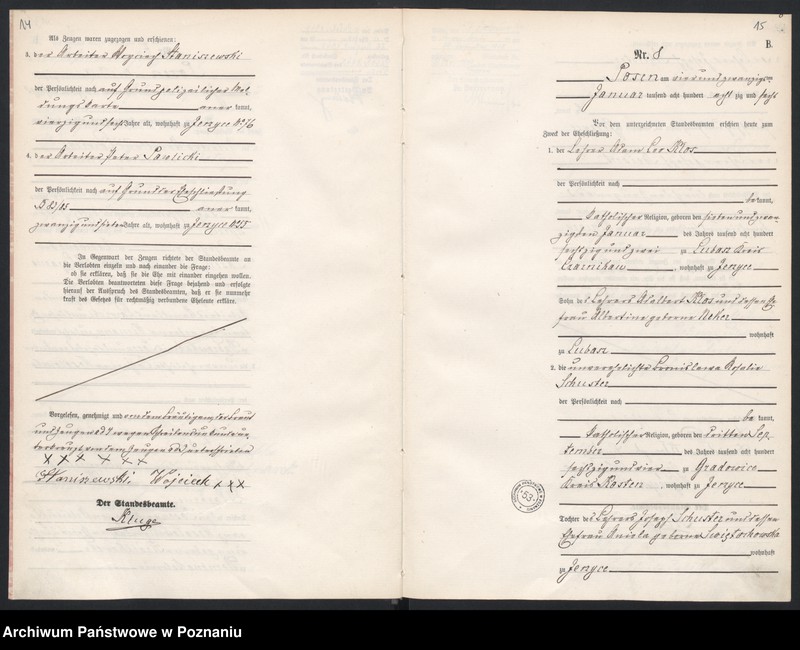 14
Als Zeugen waren zugezogen und erschienen:
3. der Arbeiter Woyciech Staniszewski
der Persönlichkeit nach auf Grund polizeilicher Mel-
dungskarte anerkannt,
vierzig und sechs Jahre alt, wohnhaft zu Jerzyce No 56
4. der Arbeiter Peter Pawlicki
der Persönlichkeit nach auf Grund der Eheschließung
anerkannt,
zwanzig und sieben Jahre alt, wohnhaft zu Jerzyce
In Gegenwart der Zeugen richtete der Standesbeamte an
die Verlobten einzeln und nach einander die Frage:
ob sie erklären, daß sie die Ehe mit einander eingehen wollen.
Die Verlobten beantworteten diese Frage bejahend und erfolgte
hierauf der Ausspruch des Standesbeamten, daß er sie nunmehr
kraft des Gesetzes für rechtmäßig verbundene Eheleute erkläre.
Vorgelesen, genehmigt und von dem Bräutigam der Braut
und Zeugen wegen Schreibensunkunde un-
terkreuzt von dem Zeugen unterschrieben
X X X X X X
Staniszewski, Wojciech x x x
Der Standesbeamte.
Kluge
15
B.
Nr. 8
Posen am vier und zwanzigsten
Januar tausend acht hundert achtzig und sechs
Vor dem unterzeichneten Standesbeamten erschien heute zum
Zweck der Eheschließung:
1. der Lehrer Adam Leo Klos
der Persönlichkeit nach
bekannt,
katholischer Religion, geboren den sieben und zwan-
zigsten Januar des Jahres tausend acht hundert
sechszig und zwei zu Lubasz Kreis
Czarnikau, wohnhaft zu Jerzyce
Sohn des Lehrers Adalbert Klos und dessen Ehe-
frau Albertine geborne
wohnhaft
zu Lubasz
2. die unverehelichte Bronislawa Rosalie
Schuster
der Persönlichkeit nach
bekannt,
katholischer Religion, geboren den dritten Sep-
tember des Jahres tausend acht hundert
sechszig und vier zu Gradowice
Kreis Kosten, wohnhaft zu Jerzyce
Tochter des Lehrers Joseph Schuster und dessen
Ehefrau Aniela geborne Swiętochowska
wohnhaft
zu Jerzyce
53
Archiwum Państwowe w Poznaniu